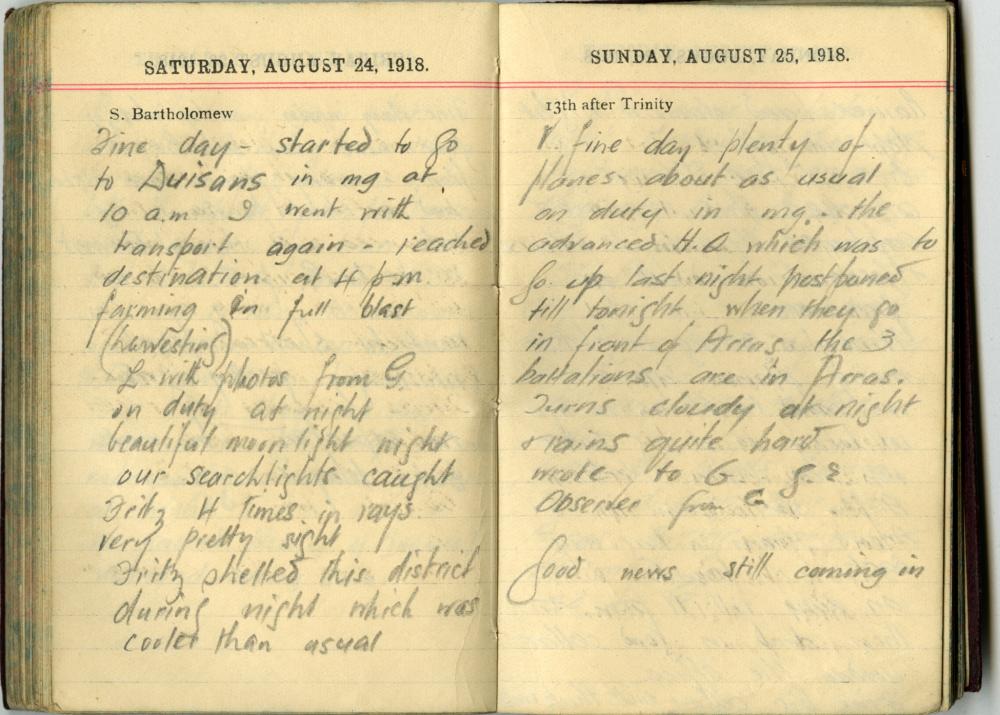 SATURDAY, AUGUST 24, 1918.
S. Bartholomew
Fine day - started to go
to Duisans in mg at
10 a.m I went with
transport again - reached
destination at 4 pm
farming in full blast
(harvesting)
L with photos from G
on duty at night
beautiful moonlight night
our searchlights caught
Fritz 4 times in rays
very pretty sight
Fritz shelled this district
during night which was
cooler than usual
SUNDAY, AUGUST 25, 1918.
13th after Trinity
V. fine day plenty of
planes about as usual
on duty in mg. the
advanced H.Q. which was to
go up last night postponed
till tonight when they go
in front of Arras, the 3
battalions are in Arras.
Turns cloudy at night
& rains quite hard
wrote to G
Observer from G
Good news still coming in